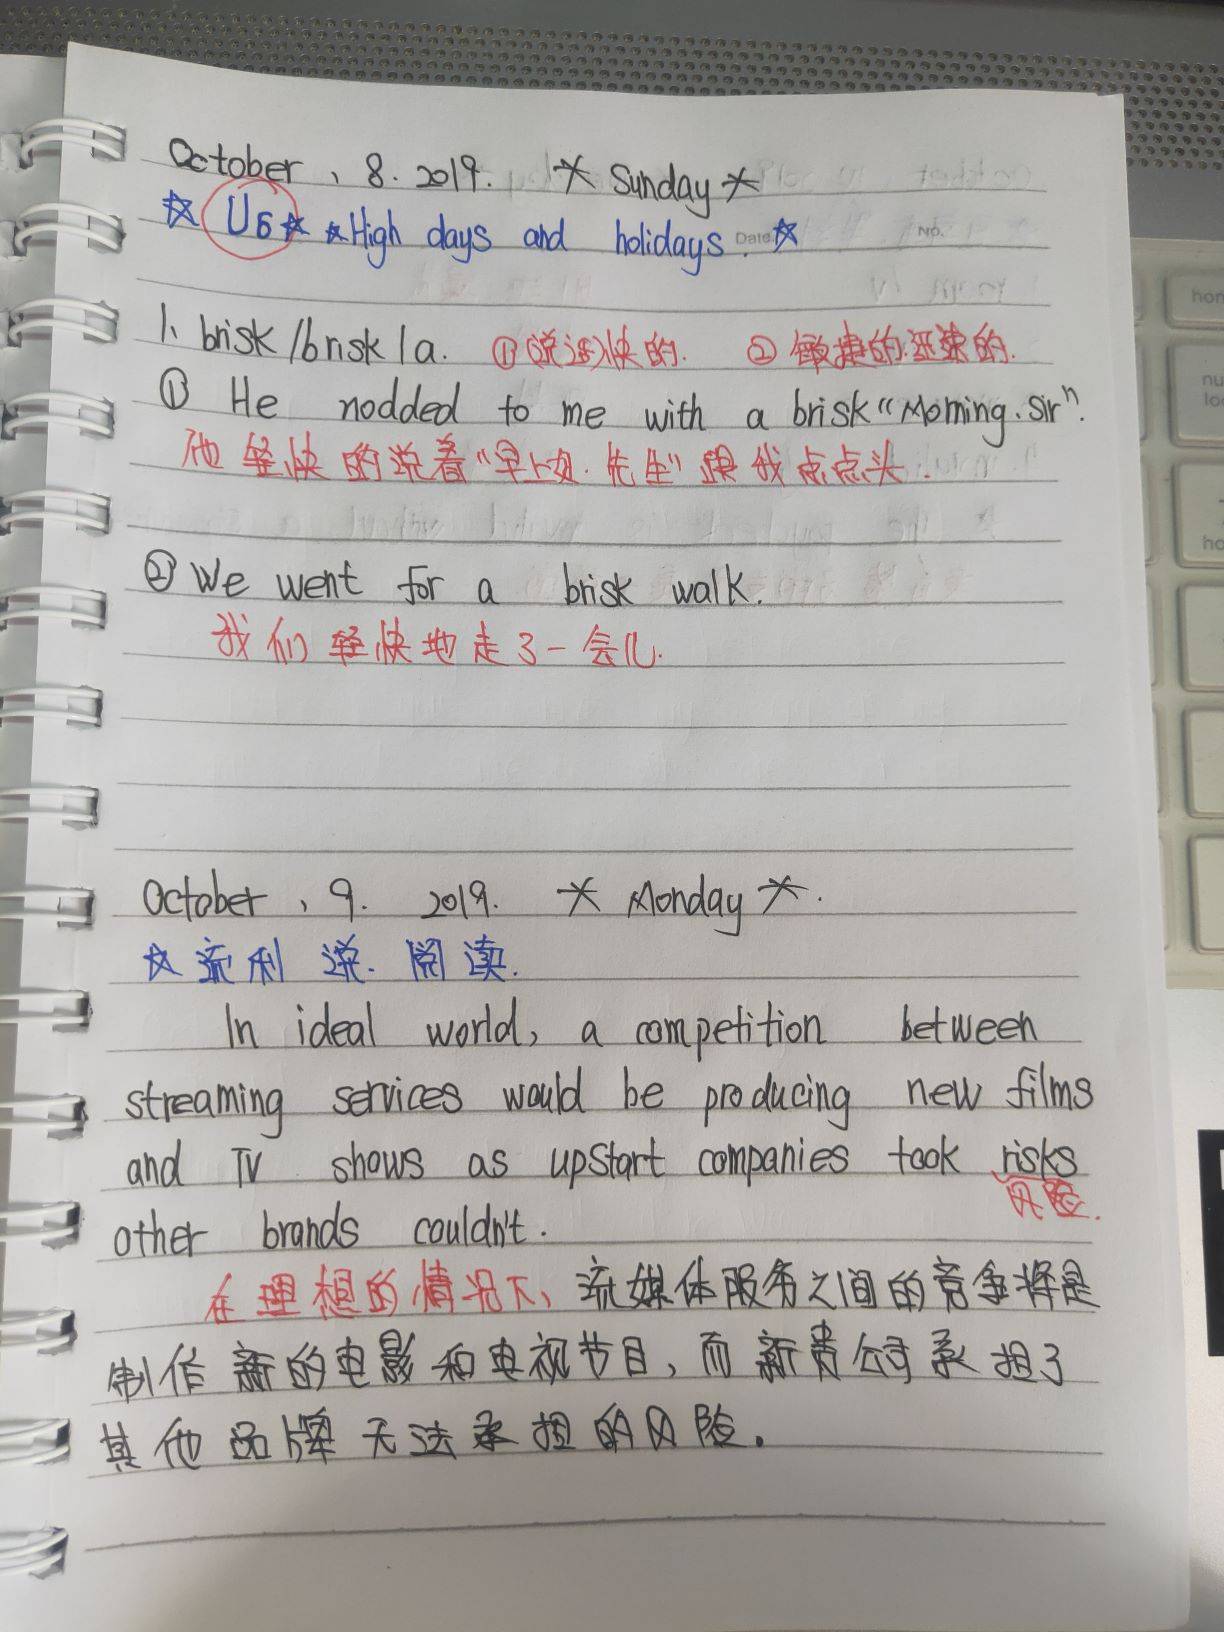 October、8. 2019. ☆ Sunday ☆
☆ U6 ☆ ☆ High days and holidays. Date. ☆ No.
1、brisk /brisk/ a. ①(说话)快的. ②敏捷的.迅速的.
① He nodded to me with a brisk "Morning. Sir".
他轻快的说着"早上好.先生"跟我点点头.
② We went for a brisk walk.
我们轻快地走了一会儿.
October、9. 2019. ☆ Monday ☆.
☆ 流利说. 阅读.
In ideal world, a competition between
streaming services would be producing new films
and TV shows as upstart companies took risks
风险.
other brands couldn't.
在理想的情况下、流媒体服务之间的竞争将是
制作新的电影和电视节目,而新贵公司承担了
其他品牌无法承担的风险。